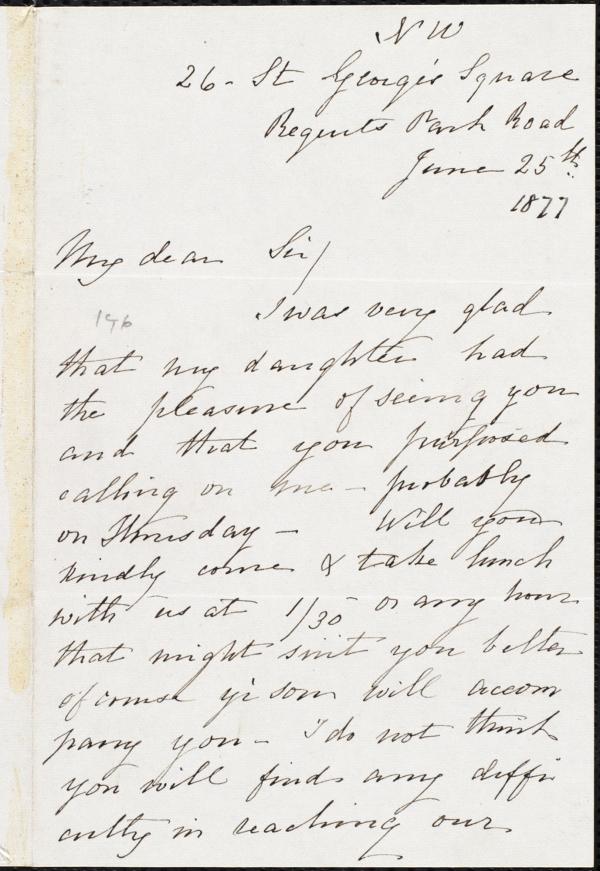 N W
26 - St George's Square
Regents Park Road
June 25th
1877
My dear Sir/
I was very glad
146
that my daughter had
the pleasure of seeing you
and that you purposed
calling on me - probably
on Thursday - Will you
kindly come & take lunch
with us at 1/30 or any hour
that might suit you better
of course yr son will accom
pany you - I do not think
you will find any diffi
culty in reaching our